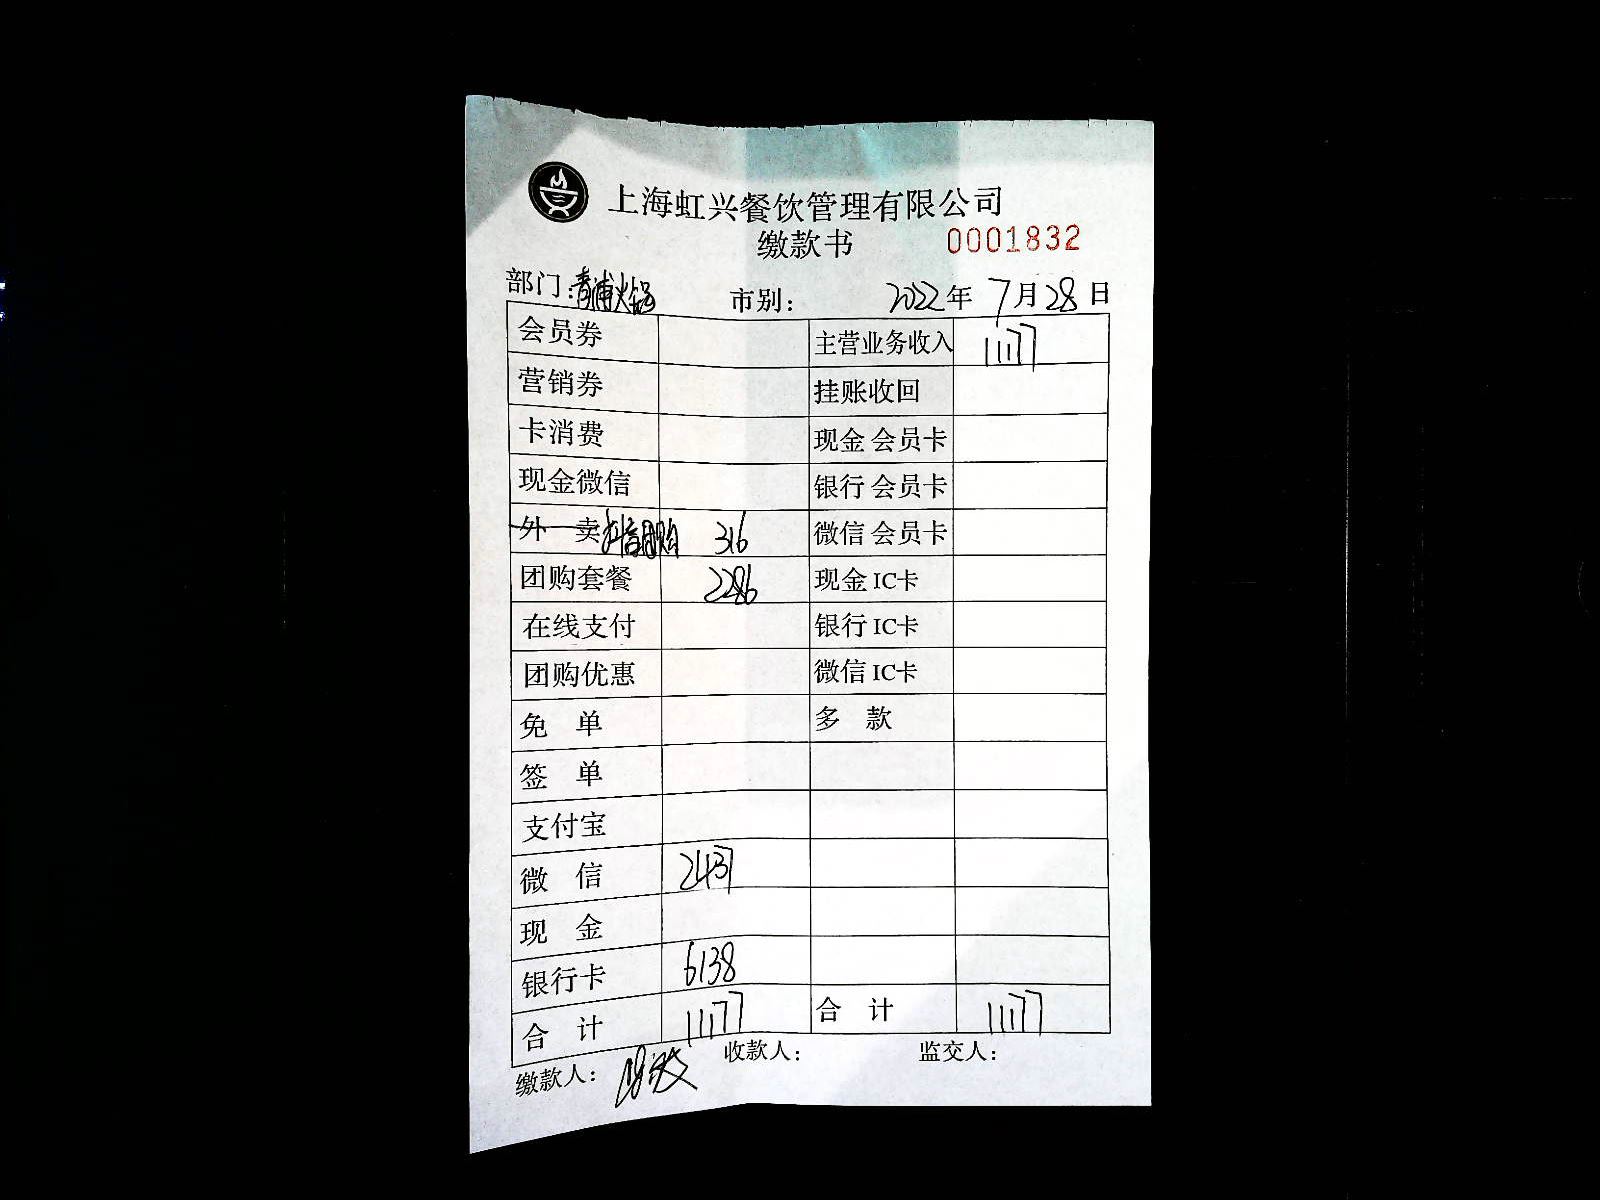 上海虹兴餐饮管理有限公司
缴款书 0001832
部门：青浦火锅 市别： 2022年 7月28日
会员券 主营业务收入 11177
营销券 挂账收回
卡消费 现金 会员卡
现金微信 银行 会员卡
外 卖 抖音团购 316 微信 会员卡
团购套餐 2286 现金 IC卡
在线支付 银行 IC卡
团购优惠 微信 IC卡
免 单 多 款
签 单
支付宝
微 信 2437
现 金
银行卡 6138
合 计 11177 合 计 11177
缴款人： 收款人： 监交人：